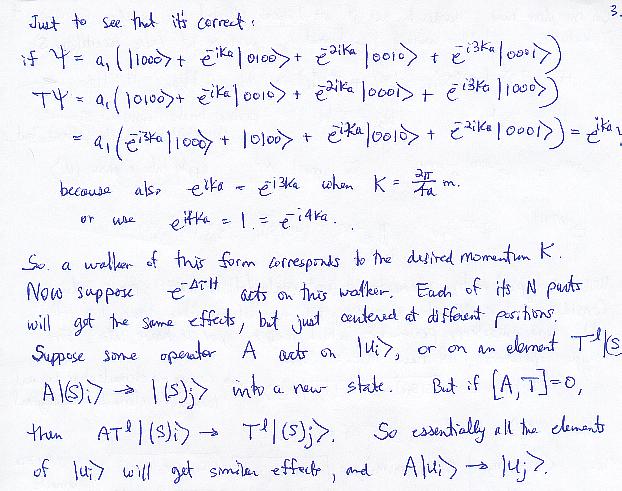 3.
Just to see that it's correct:
if Ψ = a₁(|1000> + e^{-iKa}|0100> + e^{-2iKa}|0010> + e^{-i3Ka}|0001>)
TΨ = a₁(|0100> + e^{-iKa}|0010> + e^{-2iKa}|0001> + e^{-i3Ka}|1000>)
= a₁(e^{-i3Ka}|1000> + |0100> + e^{-iKa}|0010> + e^{-2iKa}|0001>) = e^{iKa}
because also e^{iKa} = e^{-i3Ka} when K = 2π/4a m.
or use e^{i4Ka} = 1 = e^{-i4Ka}.
So a walker of this form corresponds to the desired momentum K.
Now suppose e^{-ΔτH} acts on this walker. Each of its N parts
will get the same effects, but just centered at different positions.
Suppose some operator A acts on |u_i>, or on an element T^l|(S
A|(S)_i> → |(S)_j> into a new state. But if [A,T]=0,
then AT^l|(S)_i> → T^l|(S)_j>. So essentially all the elements
of |u_i> will get similar effects, and A|u_i> → |u_j>.